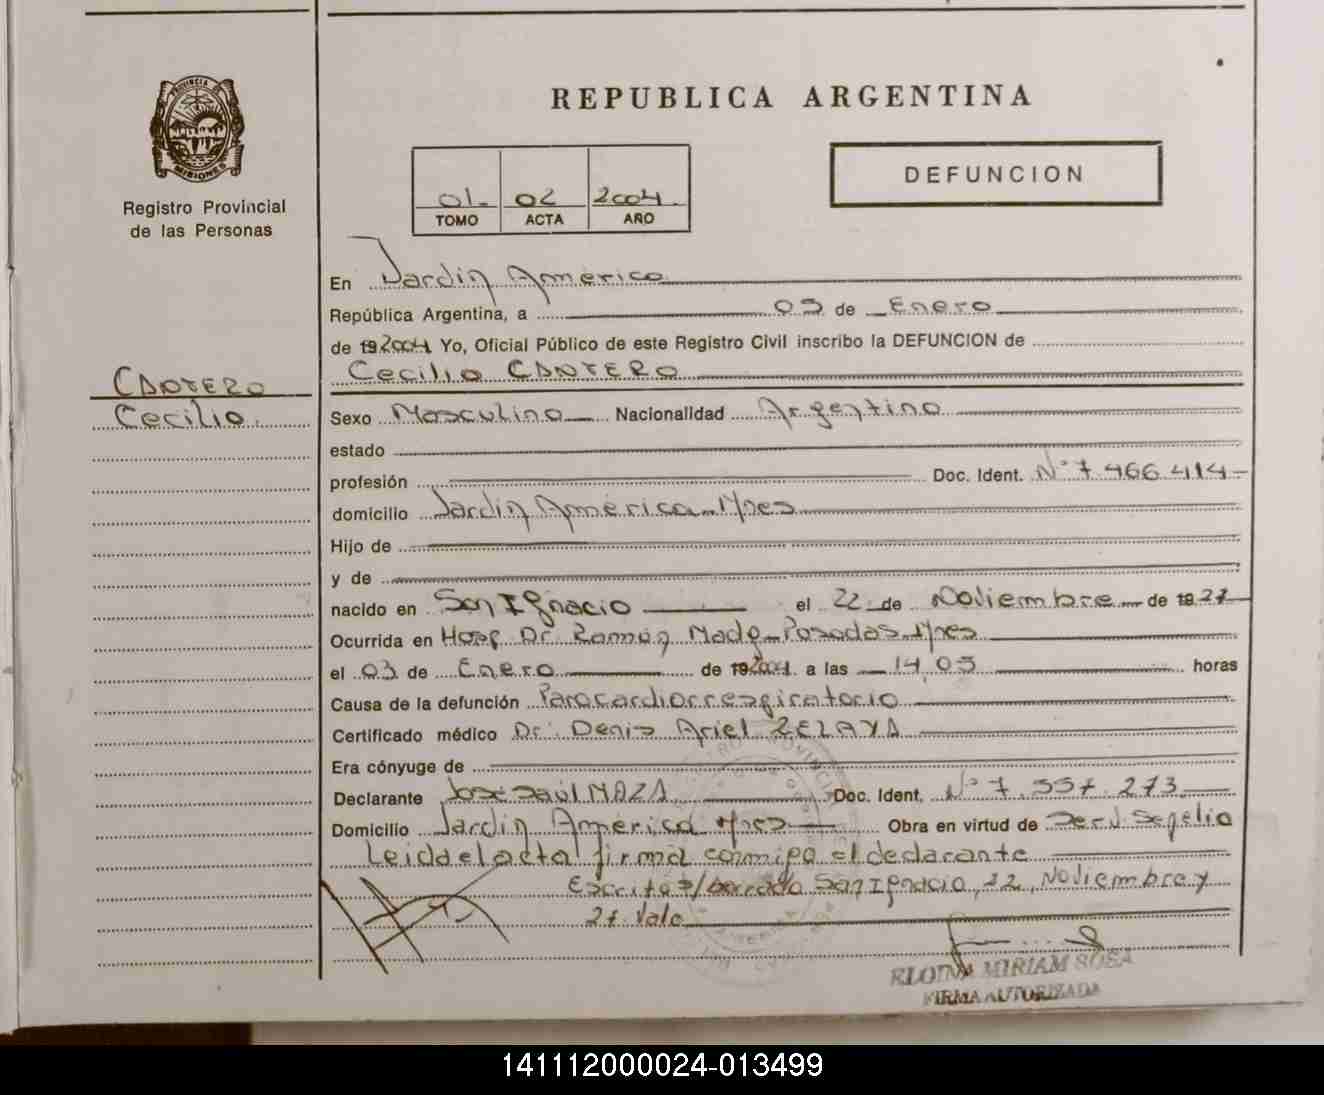 PROVINCIA DE
MISIONES
Registro Provincial
de las Personas
REPUBLICA ARGENTINA
DEFUNCION
01. 02 2004.
TOMO ACTA AÑO
En Jardín América
República Argentina, a 05 de Enero
de 192004 Yo, Oficial Público de este Registro Civil inscribo la DEFUNCION de
Cecilio CANTERO
CANTERO
Cecilio.
Sexo Masculino Nacionalidad Argentino
estado
profesión Doc. Ident. N° 7.466.414
domicilio Jardín América Mnes
Hijo de
y de
nacido en San Ignacio el 22 de Noviembre de 1927
Ocurrida en Hosp. Dr. Ramón Mad. Posadas Mnes
el 03 de Enero de 192004 a las 14,05 horas
Causa de la defunción Parocardiorrespiratorio
Certificado médico Dr. Denis Ariel ZELAYA
Era cónyuge de
Declarante José Saúl MAZA Doc. Ident. N° 7.557.273
Domicilio Jardín América Mnes Obra en virtud de Serv. Sepelio
Leida el acta firma conmigo el declarante
Escrito s/borrado San Ignacio, 22, Noviembre y
27. Vale
ELOINA MIRIAM SOSA
FIRMA AUTORIZADA
141112000024-013499